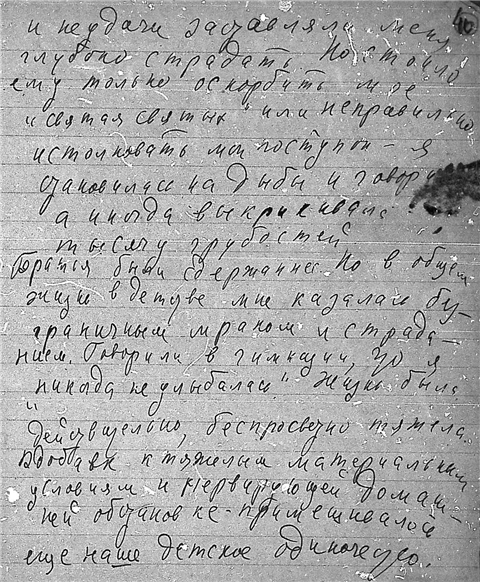 40
и неудачи заставляли меня
глубоко страдать. Но стоило
ему только оскорбить мое
"святая святых" или неправильно
истолковать мой поступок — я
становилась на дыбы и говори
а иногда выкрикивала
тысячу грубостей.
Братья были сдержаннее. Но в общем
жизнь в детстве мне казалась бу-
граничным мраком и страда-
нием. Говорили в гимназии, что я
"никогда не улыбалась." Жизнь была
действительно, беспросветно тяжела.
Вдобавок к тяжелым материальным
условиям и нервирующей домаш-
ней обстановке - примешивалось
еще наше детское одиночество.